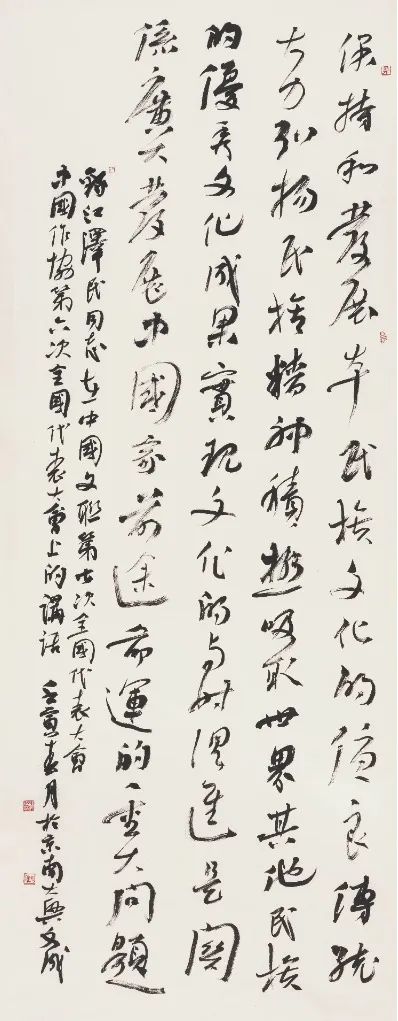 保持和發展本民族文化的優良傳統
大力弘扬民族精神積極吸取世界其他民族
的優秀文化成果實現文化的与时俱進是關
係廣大發展中國家前途命運的重大問題
錄江澤民同志在中國文聯第七次全國代表大會
中國作協第六次全國代表大會上的講話 壬寅春月於京南大興文成